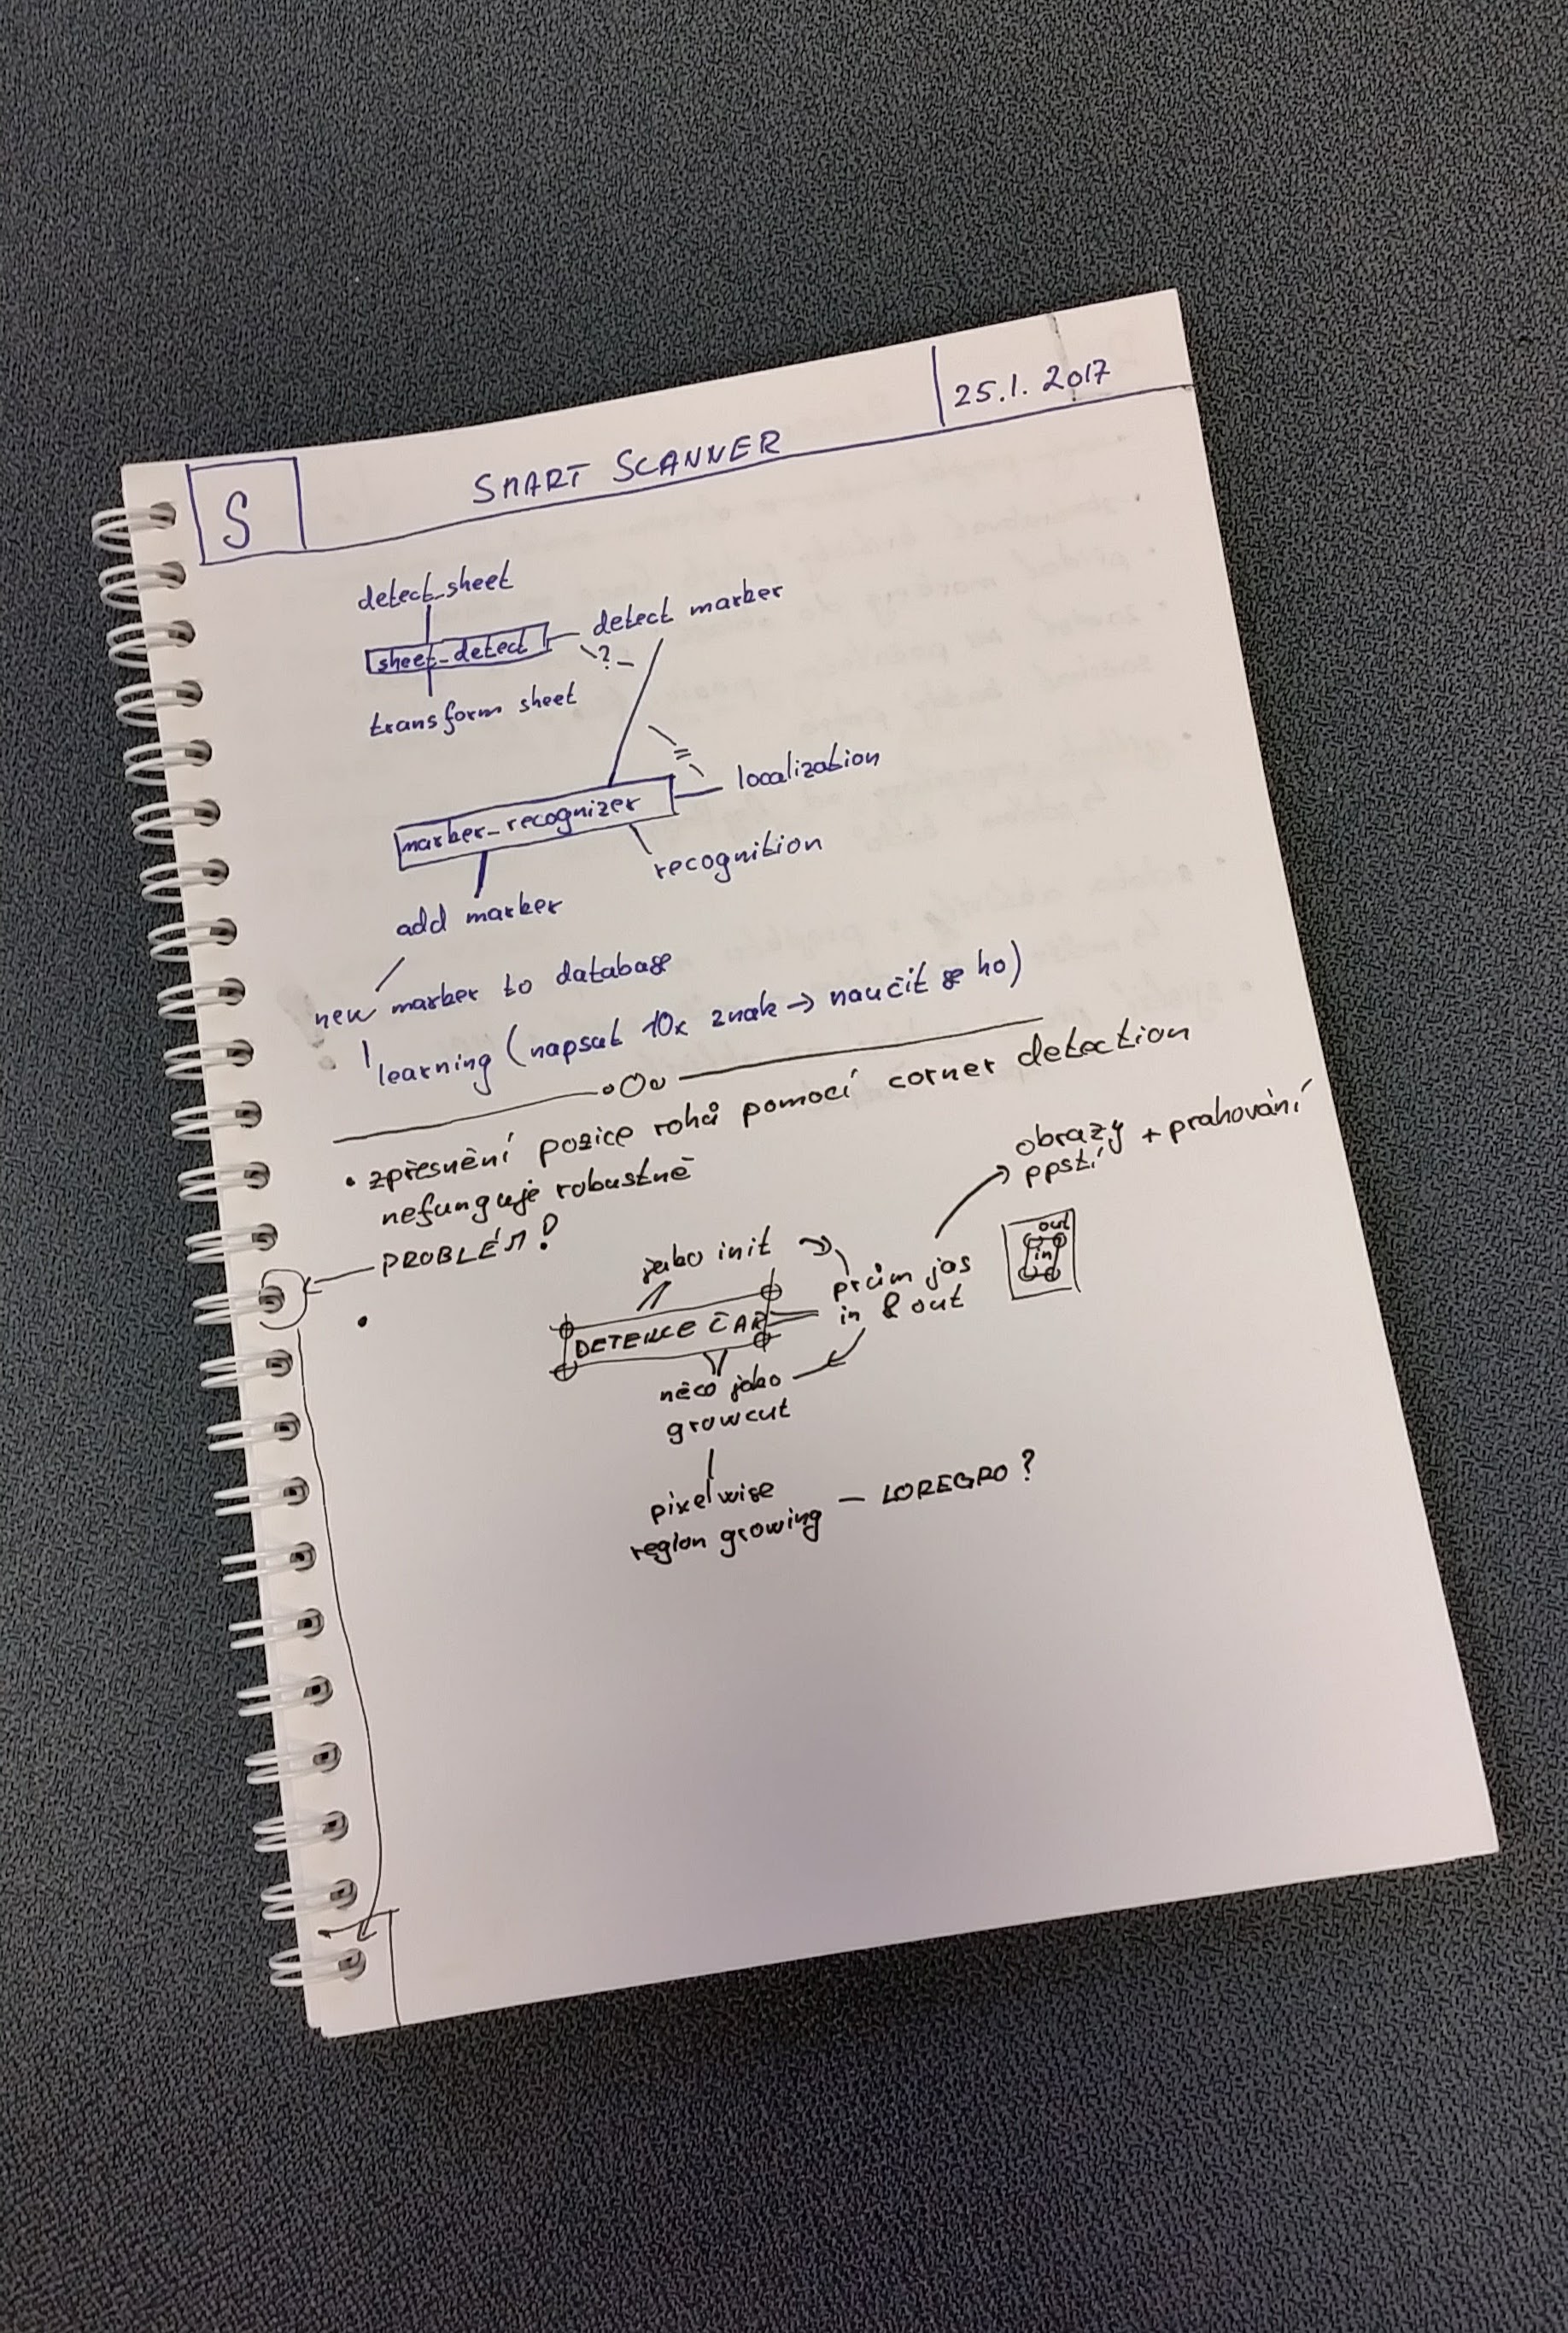 S
SMART SCANNER
25.1.2017
detect_sheet
sheet_detect
detect marker
?
transform sheet
=
localization
marker_recognizer
recognition
add marker
new marker to database
learning (napsat 10x znak → naučit se ho)
• zpřesnění pozice rohů pomocí corner detection
nefunguje robustně
PROBLÉM!
obrazy + prahování
ppstí
jako init
prům jas
in & out
out
in
•
DETEKCE ČAR
něco jako
growcut
pixelwise
region growing — LOREGRO?